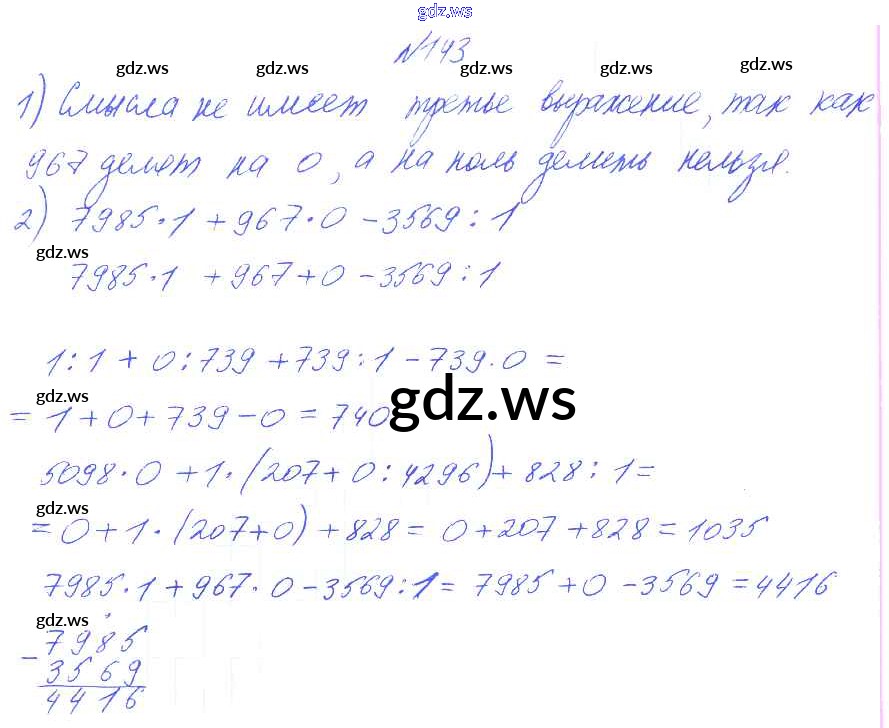 gdz.ws
№143
gdz.ws gdz.ws gdz.ws gdz.ws gdz.ws
1) Смысла не имеет третье выражение, так как
967 делят на 0, а на ноль делить нельзя.
2) 7985·1 + 967·0 - 3569 : 1
gdz.ws
7985·1 + 967 + 0 - 3569 : 1
1 : 1 + 0 : 739 + 739 : 1 - 739·0 =
gdz.ws
gdz.ws
= 1 + 0 + 739 - 0 = 740
5098·0 + 1·(207 + 0 : 4296) + 828 : 1 =
gdz.ws
= 0 + 1·(207 + 0) + 828 = 0 + 207 + 828 = 1035
7985·1 + 967·0 - 3569 : 1 = 7985 + 0 - 3569 = 4416
gdz.ws
- 7985
3569
4416